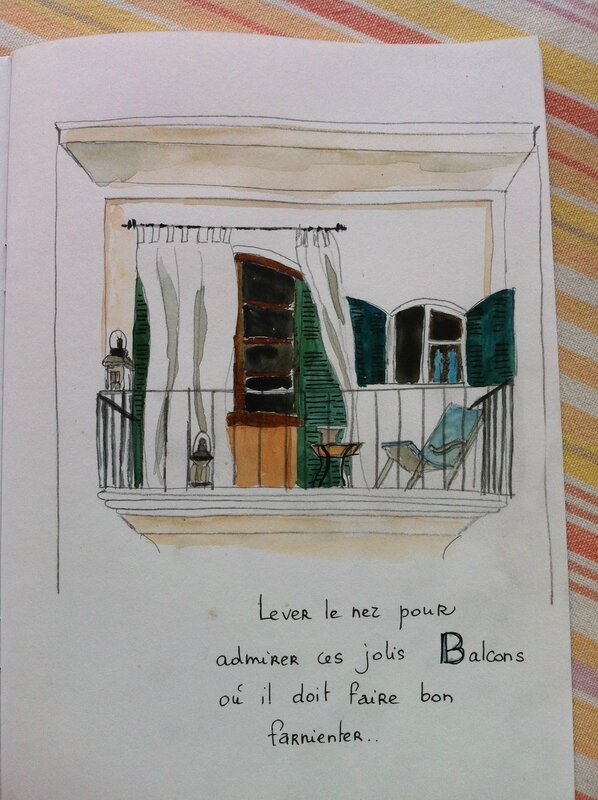 Lever le nez pour
admirer ces jolis Balcons
où il doit faire bon
farnienter..